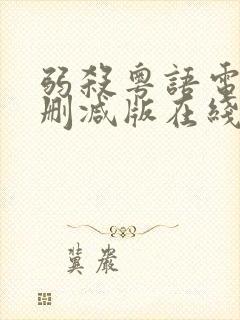 弱殺粵語電
刪減版在綫
冀嚴